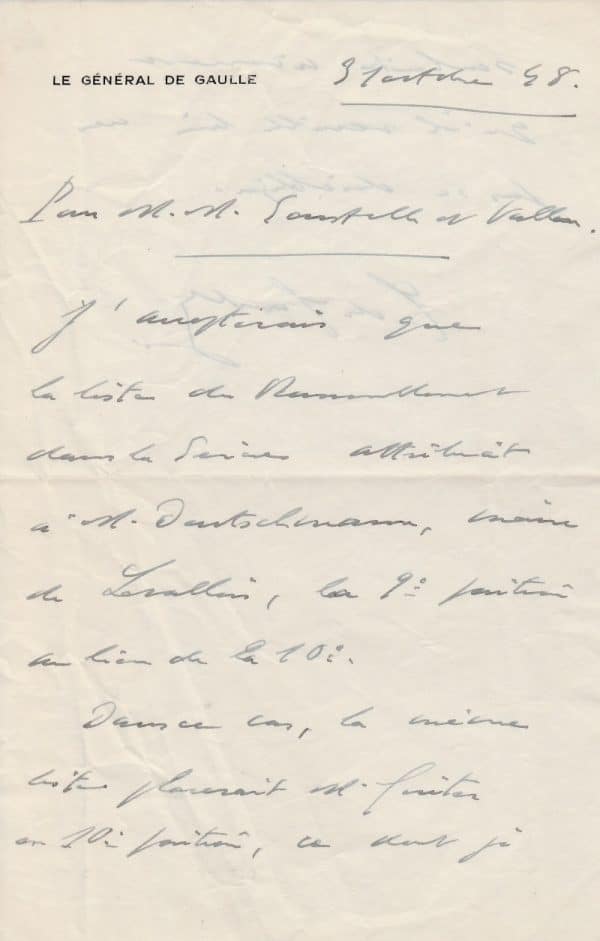 LE GÉNÉRAL DE GAULLE
31 octobre 48.
Pour M.M. Soustelle et Vallon.
J'accepterais que
la liste du Rassemblement
dans la Seine attribuât
à M. Deutschmann, maire
de Levallois, la 9e position
au lieu de la 10e.
Dans ce cas, la même
liste placerait M.
en 10e position, ce dont je